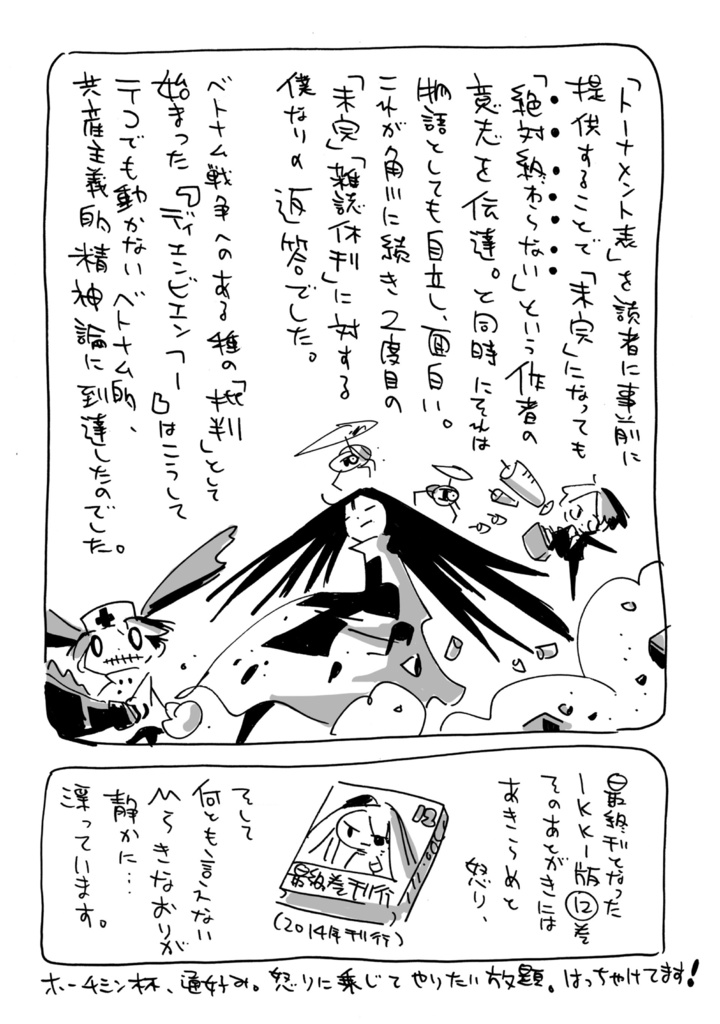 「トーナメント表」を読者に事前に
提供することで「未完」になっても
「絶対終わらない」という作者の
意志を伝達。と同時にそれは
物語としても自立し、面白い。
これが角川に続き2度目の
「未完」「雑誌休刊」に対する
僕なりの返答でした。
ベトナム戦争へのある種の「批判」として
始まった『ディエンビエンフー』はこうして
テコでも動かないベトナム的、
共産主義的精神論に到達したのでした。
最終刊となった
IKKI版⑫巻
そのあとがきには
あきらめと
怒り、
12
最終巻刊行
(2014年刊行)
そして
何とも言えない
ひらきなおりが
静かに…
漂っています。
ホーチミン杯、通好み。怒りに乗じてやりたい放題。はっちゃけてます!